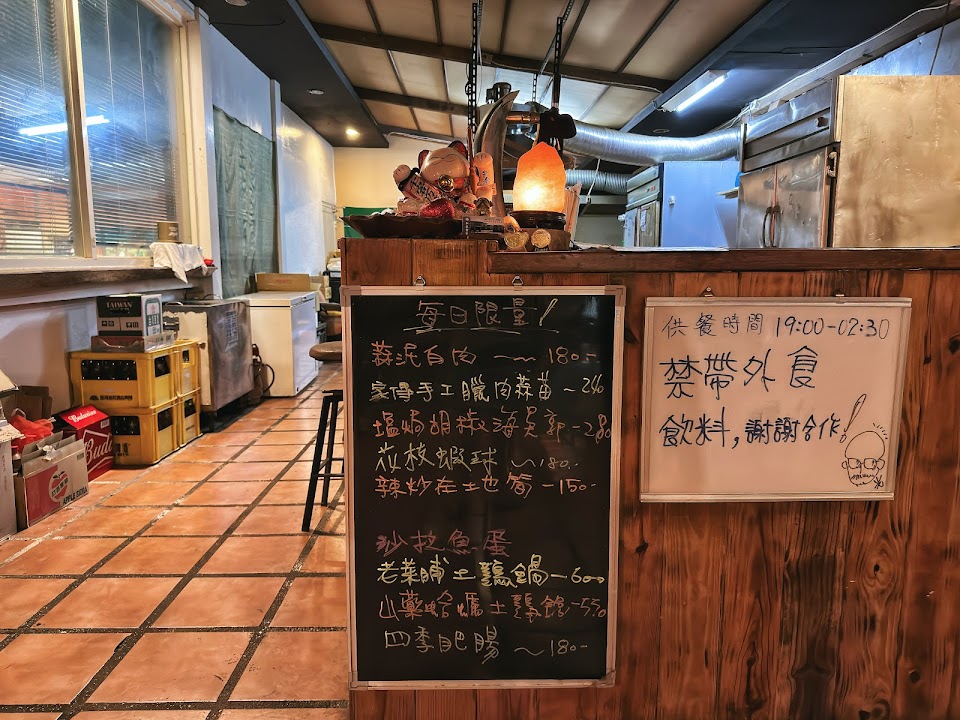 每日限量!
蒜泥白肉 ~~ 180-
家傳手工臘肉蒜苗 - 240
塩焗胡椒海 - 280
花枝蝦球 ~ 180-
辣炒在土也筍 - 150-
沙拉魚蛋
老菜脯土雞鍋 - 600
山藥蛤蠣土雞鍋 - 550
四季肥腸 ~ 180-
供餐時間 19:00-02:30
禁帶外食
飲料,謝謝合作!
TAIWAN
Budweiser
Bud
APPLE